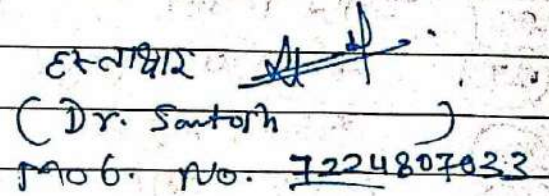 हस्ताक्षर
( Dr. Santosh )
Mob. No. 7224807033